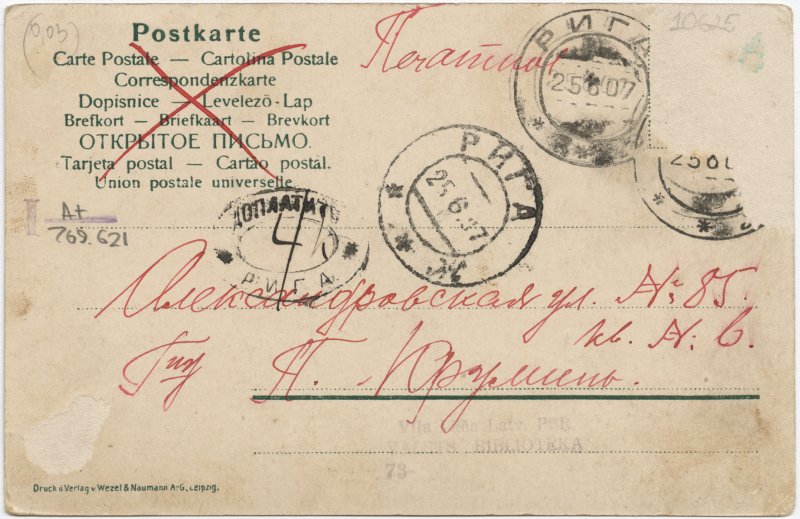 (0,05)
10625
Postkarte
Carte Postale — Cartolina Postale
Correspondenzkarte
Dopisnice — Levelező-Lap
Brefkort — Briefkaart — Brevkort
ОТКРЫТОЕ ПИСЬМО.
Tarjeta postal — Cartão postál.
Union postale universelle.
Печатное
РИГА
25 6 07
РИГА
25.6.07
2560
A+
769.621
ДОПЛАТИТЬ
4
РИГА
Александровская ул. № 85.
кв. №. 6.
Гну П. Крумень.
Vila Lāča Latv. PSR
VALSTS BIBLIOTEKA
73-
Druck u. Verlag v. Wezel & Naumann A.-G., Leipzig.